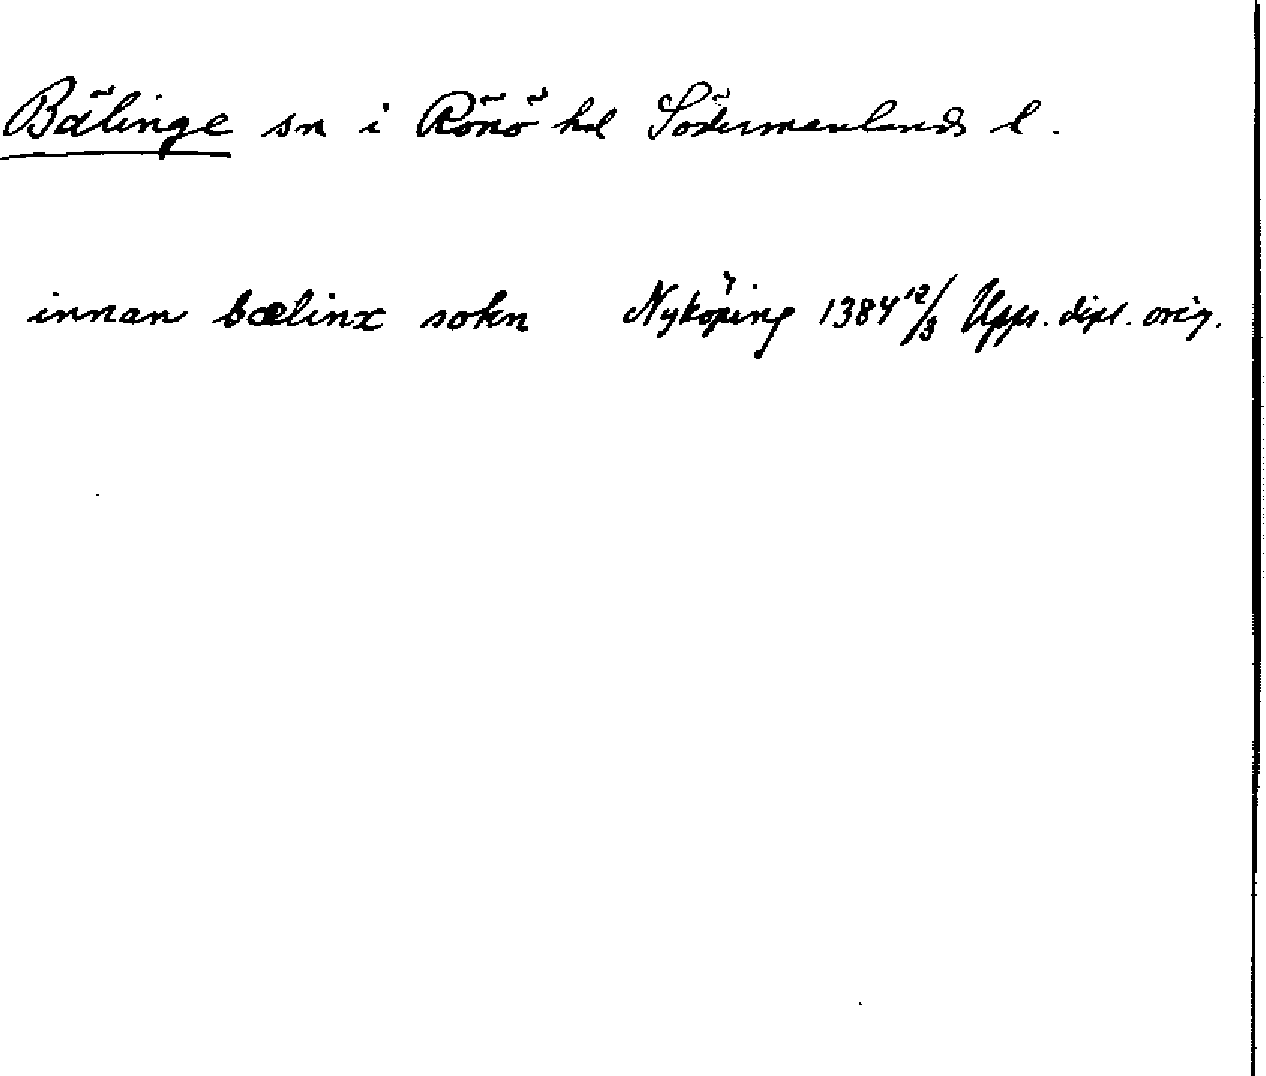 Bälinge sn i Rönö hd Södermanlands l.
innan bælinx sokn Nyköping 1384 12/3 Upps. dipl. orig.